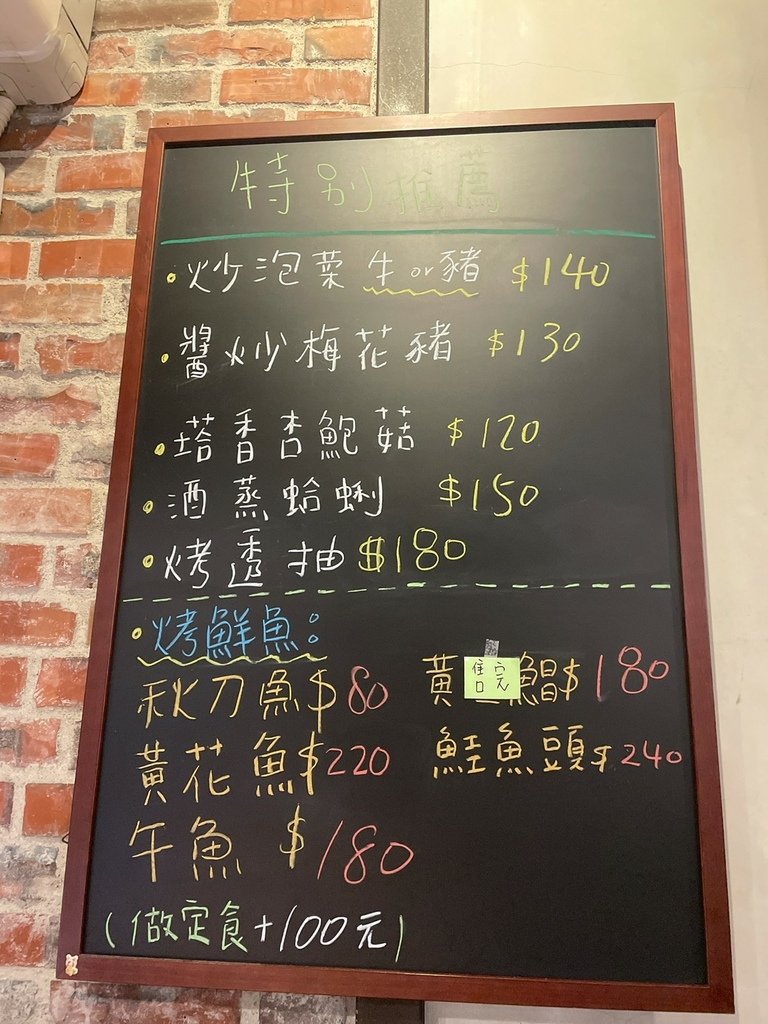 特別推薦
•炒泡菜牛or豬 $140
•醬炒梅花豬 $130
•塔香杏鮑菇 $120
•酒蒸蛤蜊 $150
•烤透抽$180
•烤鮮魚:
秋刀魚$80
黃 鯧$180
售完
黃花魚$220
鮭魚頭$240
午魚 $180
(做定食+100元)